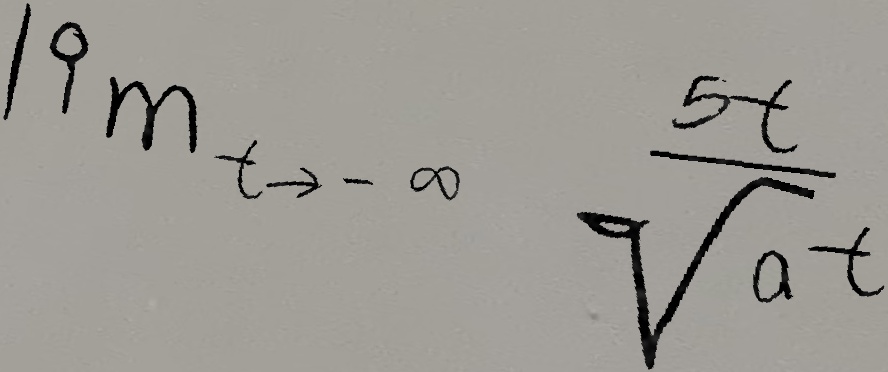 lim t→-∞ 5t/√at